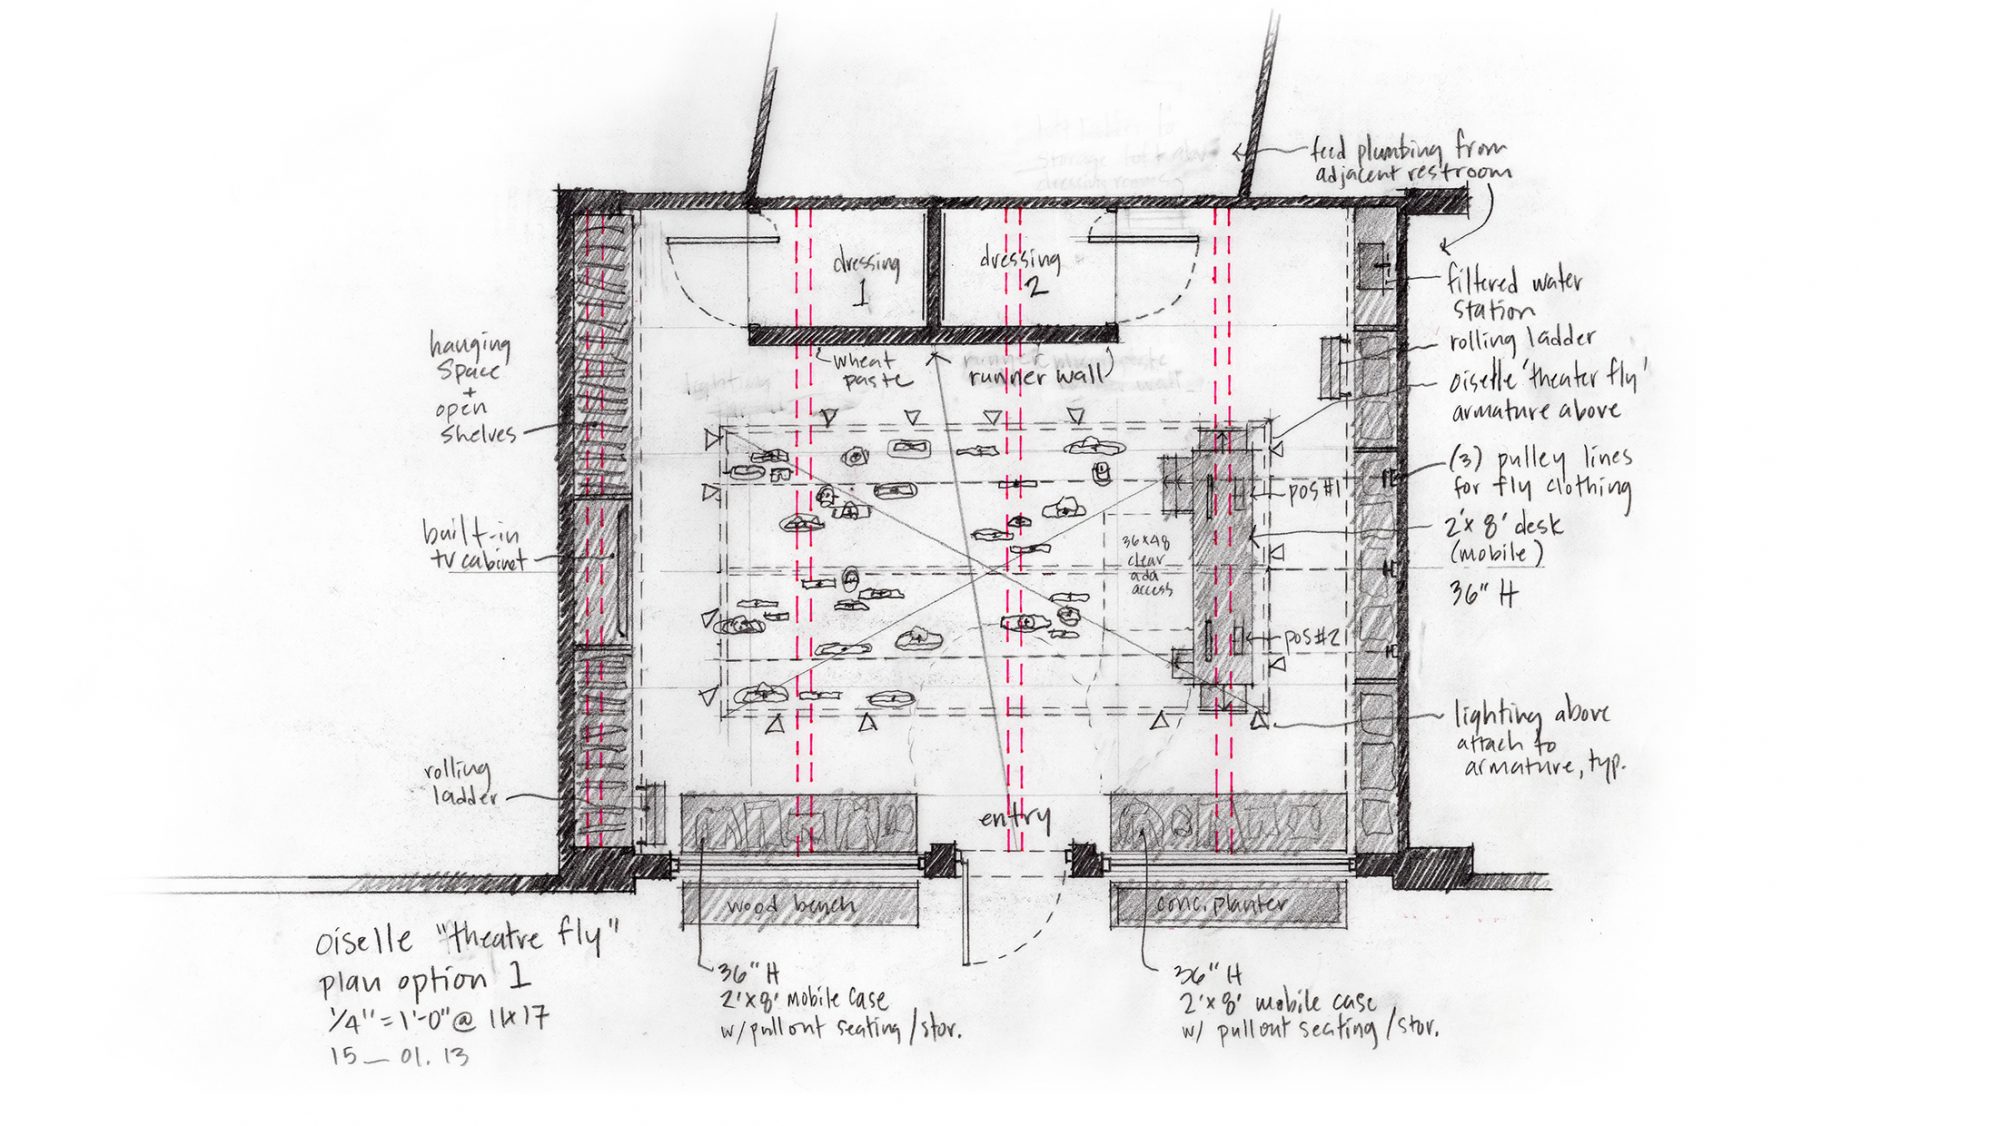 feed plumbing from
adjacent restroom
dressing
1
dressing
2
filtered water
station
rolling ladder
oiselle 'theater fly'
armature above
hanging
space
+
open
shelves
wheat
paste
runner wall
(3) pulley lines
for fly clothing
pos #1
2'x 8' desk
(mobile)
36" H
built-in
tv cabinet
36x48
clear
ada
access
pos #2
lighting above
attach to
armature, typ.
rolling
ladder
entry
wood bench
conc. planter
oiselle "theatre fly"
plan option 1
1/4" = 1'-0" @ 11x17
15_01.13
36" H
2'x8' mobile case
w/ pullout seating /stor.
36" H
2'x8' mobile case
w/ pullout seating /stor.